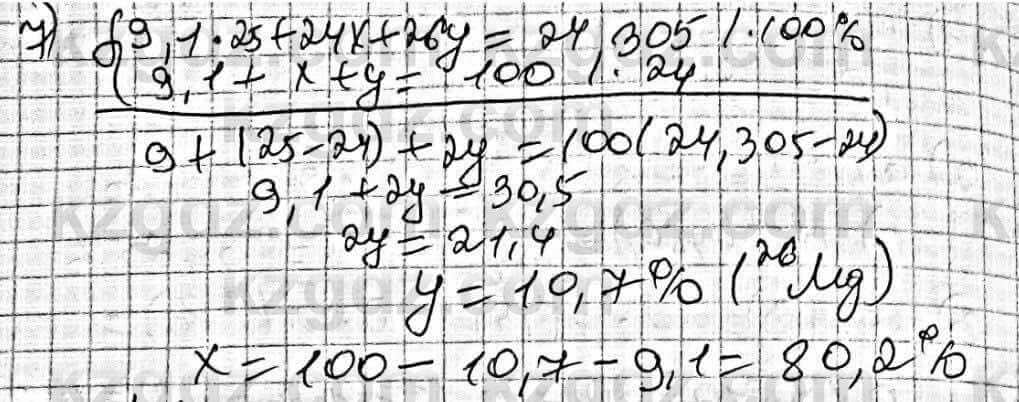 7) {9,1·25+24x+26y = 24,305 /·100%
9,1 + x + y = 100 /·24
9+(25-24)+2y = 100(24,305-24)
9,1+2y = 30,5
2y = 21,4
y = 10,7% (²⁶Mg)
x = 100 - 10,7 - 9,1 = 80,2%
kzgdz.com